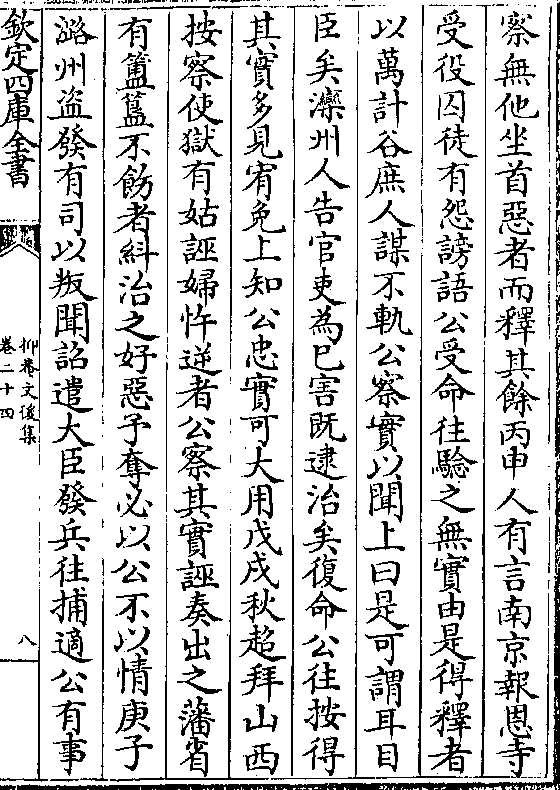 察無他坐首惡者而釋其餘丙申人有言南京報恩寺
受役囚徒有怨謗語公受命往驗之無實由是得釋者
以萬計谷庶人謀不軌公察實以聞上曰是可謂耳目
臣矣灤州人告官吏為已害既逮治矣復命公往按得
其實多見宥免上知公忠實可大用戊戌秋超拜山西
按察使獄有姑誣婦忤逆者公察其實誣奏出之藩省
有簠簋不飭者糾治之好惡予奪必以公不以情庚子
潞州盜發有司以叛聞詔遣大臣發兵往捕適公有事
欽定四庫全書
抑菴文後集
卷二十四
八